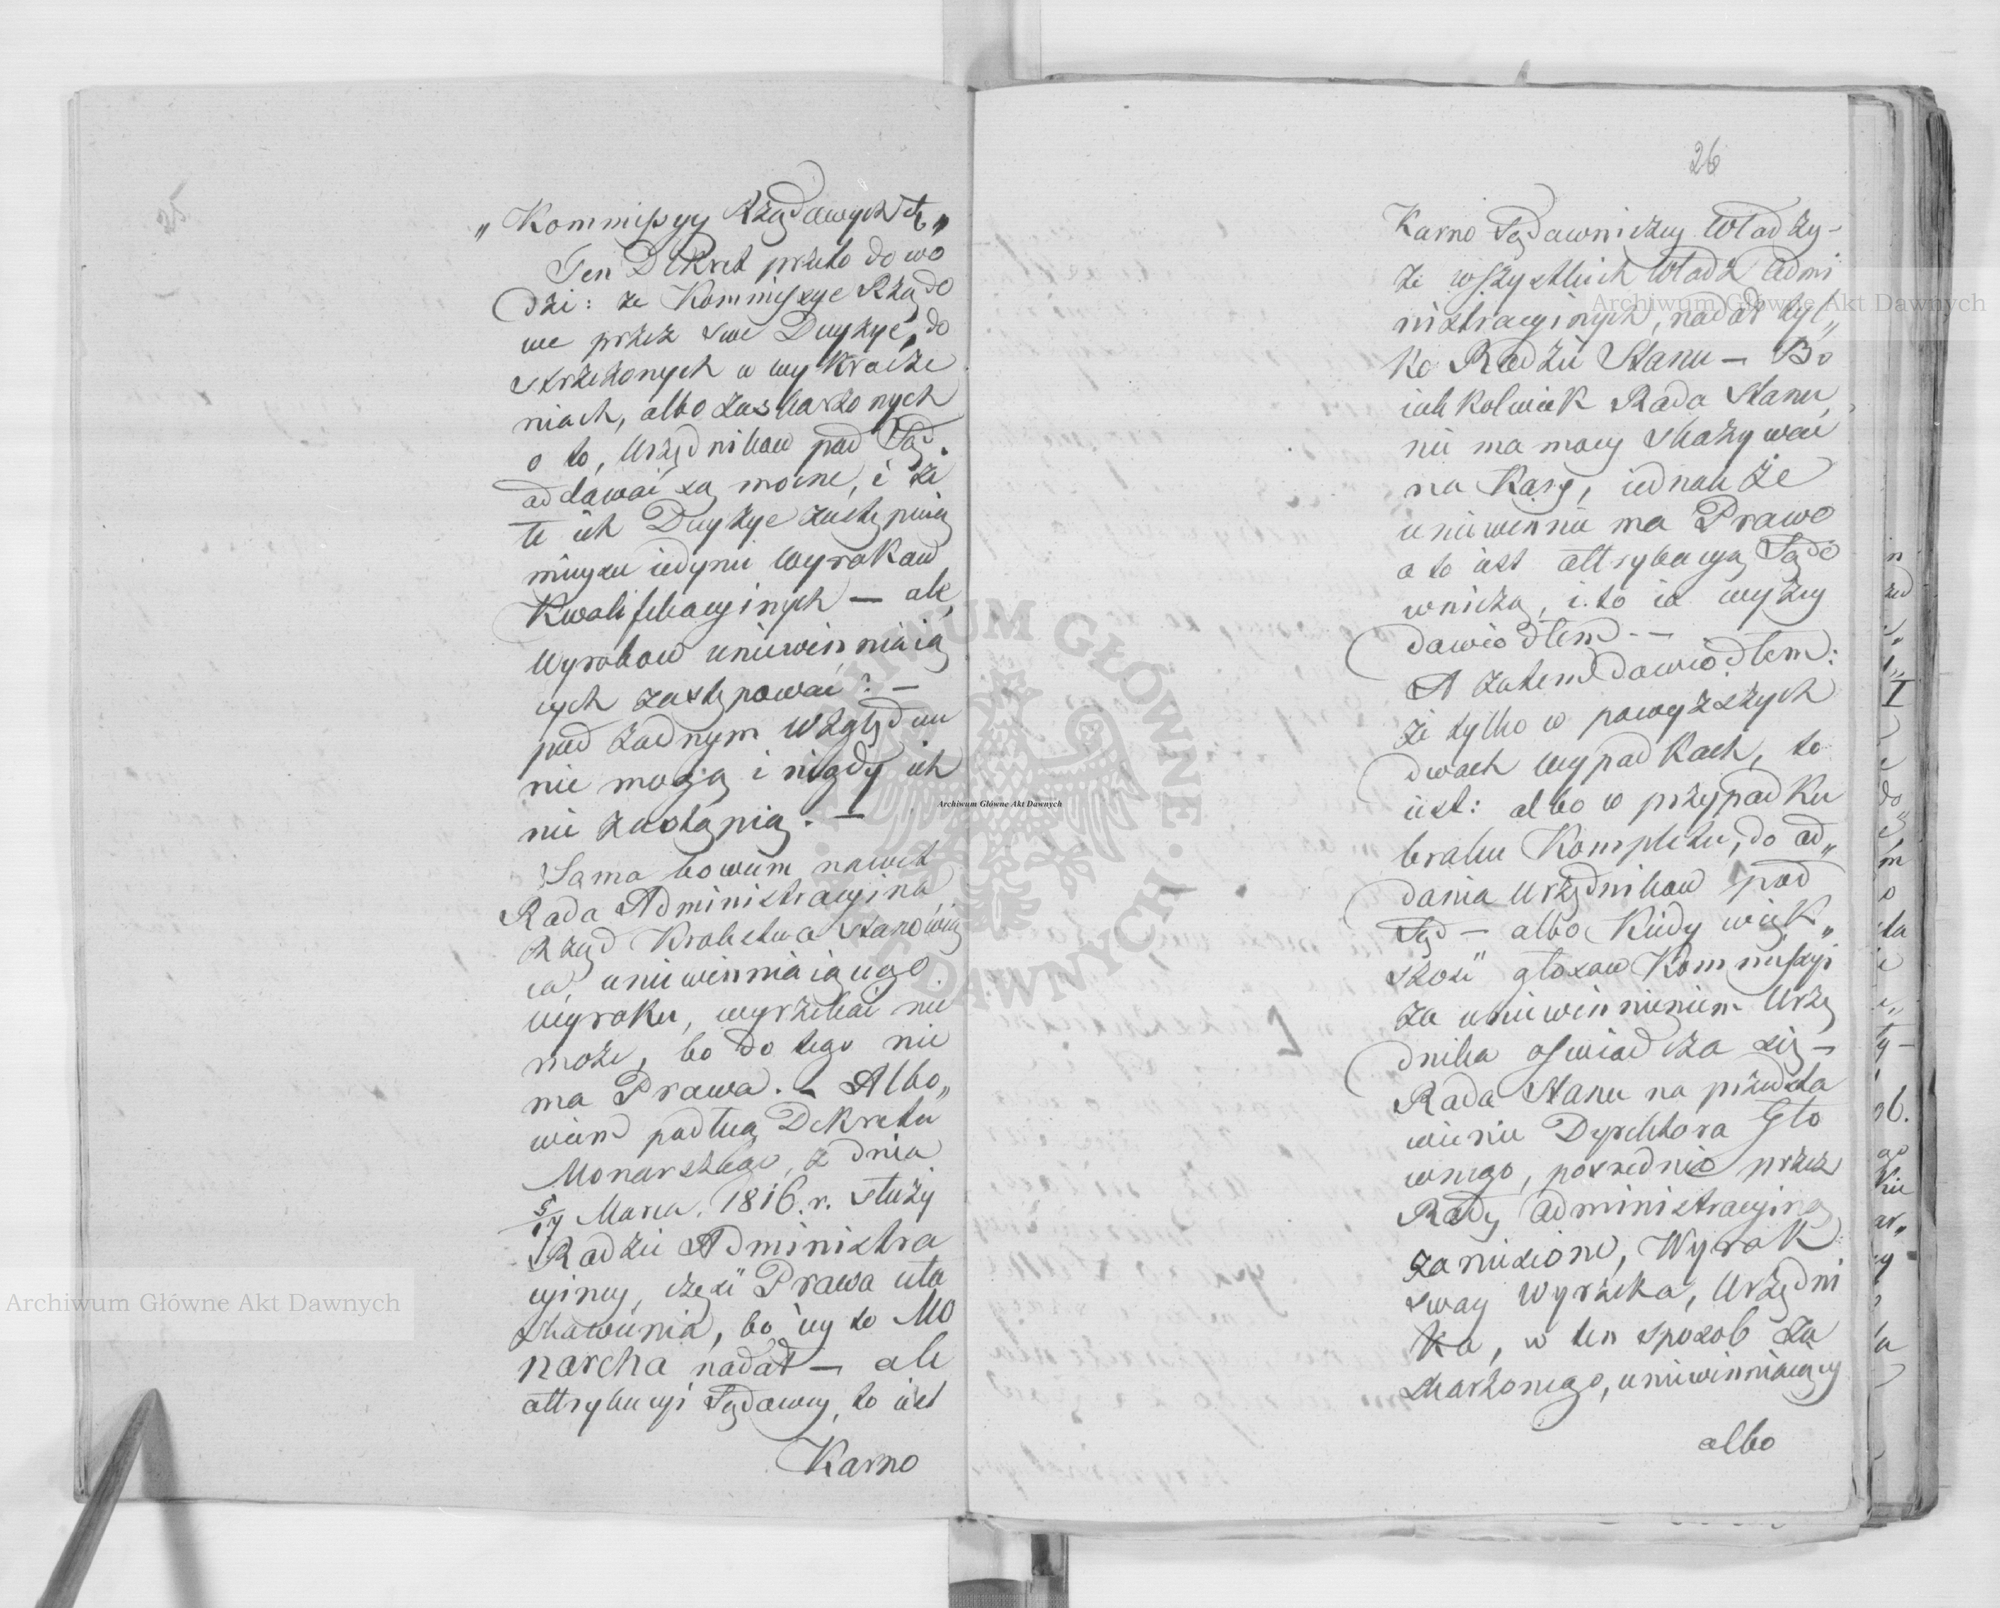 „Kommissyy Rządowych etc„
Ten Dekret przeto dowo
dzi: że Kommissye Rządo
we przez swe Decyzye, do
strzeżonych w wykrocze
niach, albo zaskarżonych
o to, Urzędnikow pod Sąd
oddawać są mocne, i że
te ich Decyzye zastępuią
mieysce iedynie Wyrokow
Kwalifikacyinych — ale,
Wyrokow uniewinniaią
cych zastępować? —
pod żadnym względem
nie mogą i nigdy ich
nie zastąpią. —
Sama bowiem nawet
Rada Administracyina,
Rząd Krolestwa stanowią
ca, uniewinniaiącego
wyroku, wyrzekać nie
może, bo do tego nie
ma Prawa. — Albo„
wiem podług Dekretu
Monarszego, z dnia
5/17 Marca 1816. r. służy
Radzie Administra
cyiney, część Prawa uła
skawienia, bo iey to Mo
narcha nadał — ale
attrybucyi Sądowey, to iest
Karno
26
Karno Sądowniczey Władzy —
ze wszystkich Władz Admi
nistracyinych, nadał tyl„
ko Radzie Stanu — Bo
iakkolwiek Rada Stanu,
nie ma mocy skazywać
na Karę, iednakże
uniewinnić ma Prawo
a to iest attrybucyą Sądo
wniczą, i to ia wyżey
dowiodłem. —
A zatem dowiodłem:
że tylko w powyższych
dwoch wypadkach, to
iest: albo w przypadku
braku Kompletu, do od„
dania Urzędnikow pod
Sąd — albo Kiedy więk„
szość głosow Kommissyi
za uniewinnieniem Urzę
dnika oświadcza się —
Rada Stanu na przedsta
wienie Dyrektora Gło
wnego, pośrednio przez
Radę Administracyiną
zaniesione, Wyrok
swoy Wyrzeka, Urzędni
ka, w ten sposob za
skarżonego, uniewinniaiący
albo
Archiwum Główne Akt Dawnych
Archiwum Główne Akt Dawnych
Archiwum Główne Akt Dawnych
Archiwum Główne Akt Dawnych
ARCHIWUM GŁÓWNE AKT DAWNYCH